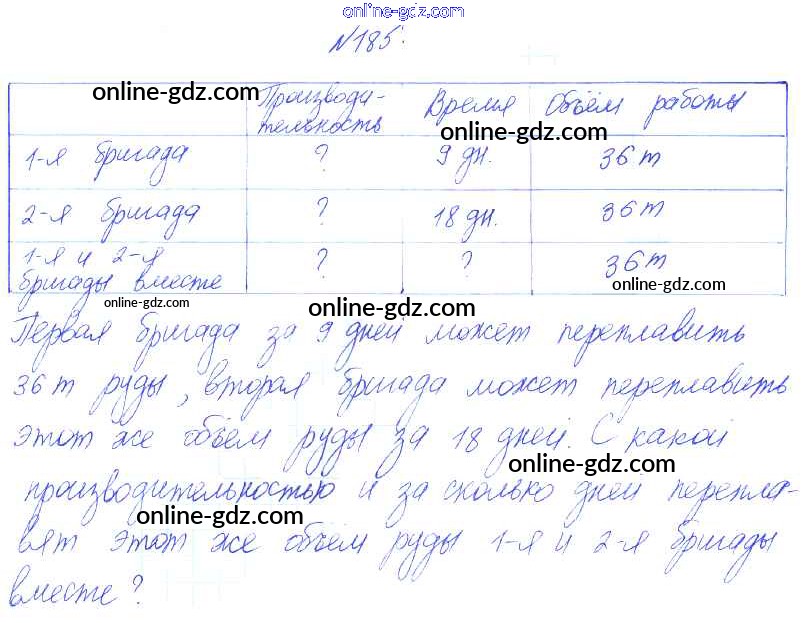 online-gdz.com
№185.
online-gdz.com Производи-
тельность Время Объём работы
online-gdz.com
1-я бригада ? 9 дн. 36 т
2-я бригада ? 18 дн. 36 т
1-я и 2-я
бригады вместе ? ? 36 т
online-gdz.com online-gdz.com online-gdz.com
Первая бригада за 9 дней может переплавить
36 т руды, вторая бригада может переплавить
этот же объём руды за 18 дней. С какой
online-gdz.com
производительностью и за сколько дней перепла-
online-gdz.com
вят этот же объём руды 1-я и 2-я бригады
вместе?